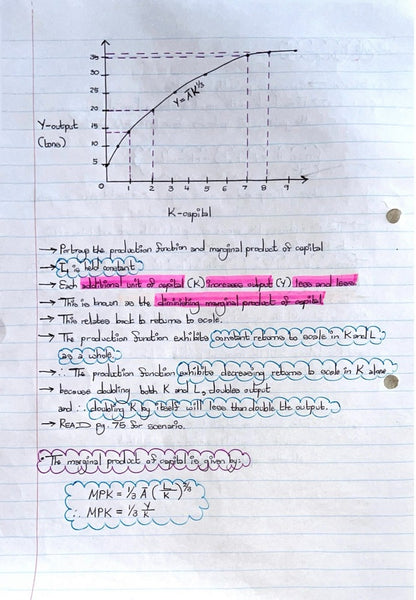 35
30
25
20
15
10
5
0
Y-output
(tons)
Y = ĀK^1/3
1 2 3 4 5 6 7 8 9
K-capital
→ Portrays the production function and marginal product of capital
→ It is held constant
→ Each additional unit of capital (K) increases output (Y) less and less.
→ This is known as the diminishing marginal product of capital
→ This relates back to returns to scale.
→ The production function exhibits constant returns to scale in K and L
as a whole.
→ ∴ The production function exhibits decreasing returns to scale in K alone
→ because doubling both K and L, doubles output
and ∴ doubling K by itself will less than double the output.
→ READ pg. 75 for scenario.
• The marginal product of capital is given by:
MPK = 1/3 Ā (L/K)^2/3
∴ MPK = 1/3 Y/K